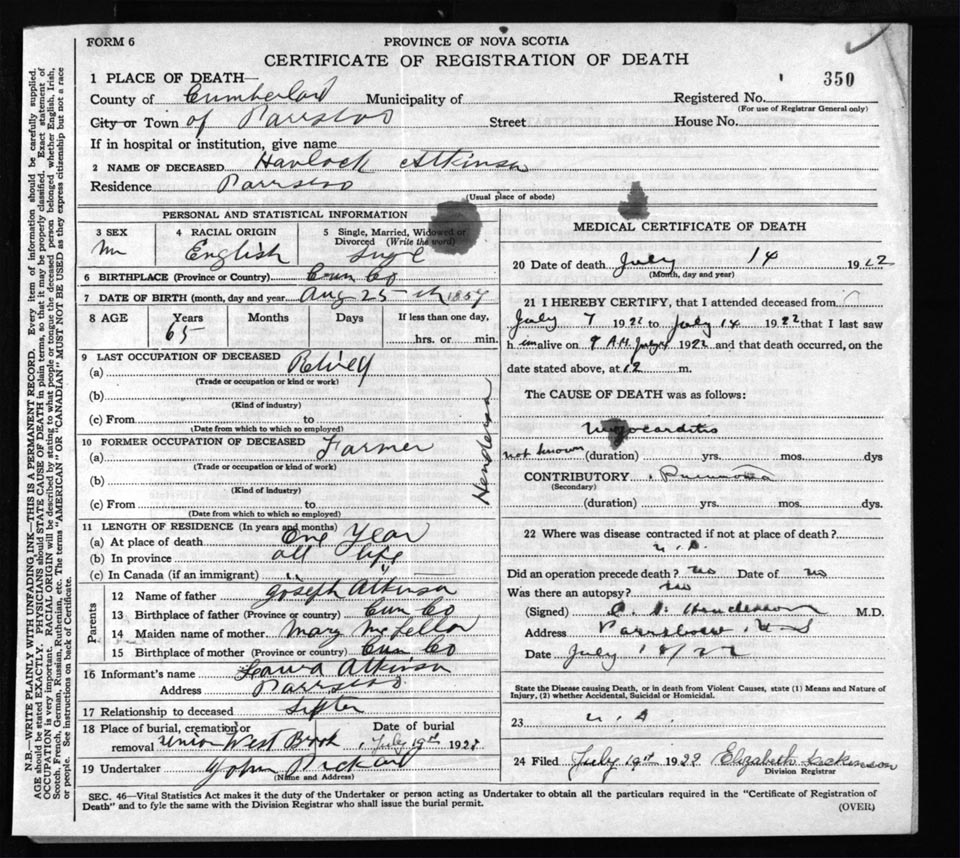 FORM 6
PROVINCE OF NOVA SCOTIA
CERTIFICATE OF REGISTRATION OF DEATH
350
1 PLACE OF DEATH—
County of Cumberland Municipality of Registered No.
(For use of Registrar General only)
City or Town of Parrsboro Street House No.
If in hospital or institution, give name
2 NAME OF DECEASED Havlock Atkinson
Residence Parrsboro
(Usual place of abode)
PERSONAL AND STATISTICAL INFORMATION
3 SEX
m
4 RACIAL ORIGIN
English
5 Single, Married, Widowed or Divorced (Write the word)
Single
6 BIRTHPLACE (Province or Country) Cum Co
7 DATE OF BIRTH (month, day and year) Aug 25th 1857
8 AGE Years Months Days If less than one day,
65 hrs. or min.
9 LAST OCCUPATION OF DECEASED
(a)
(Trade or occupation or kind or work)
(b)
(Kind of industry)
(c) From to
(Date from which to which so employed)
10 FORMER OCCUPATION OF DECEASED
(a) Farmer
(Trade or occupation or kind or work)
(b)
(Kind of industry)
(c) From to
(Date from which to which so employed)
Henderson
11 LENGTH OF RESIDENCE (In years and months)
(a) At place of death One Year
(b) In province all life
(c) In Canada (if an immigrant) "
Parents
12 Name of father Joseph Atkinson
13 Birthplace of father (Province or country) Cum Co
14 Maiden name of mother Mary
15 Birthplace of mother (Province or Country) Cum Co
16 Informant's name Laura Atkinson
Address Parrsboro
17 Relationship to deceased Sister
18 Place of burial, cremation or removal Union West Brook
Date of burial July 19th 1922
19 Undertaker John Pickard
(Name and Address)
MEDICAL CERTIFICATE OF DEATH
20 Date of death July 14 1922
(Month, day and year)
21 I HEREBY CERTIFY, that I attended deceased from
July 7 1922 to July 14 1922 that I last saw
him alive on 9 A.M. July 14 1922 and that death occurred, on the
date stated above, at 12 m.
The CAUSE OF DEATH was as follows:
Myocarditis
not known (duration) yrs. mos. dys
CONTRIBUTORY Pneumonia
(Secondary)
(duration) yrs. mos. dys.
22 Where was disease contracted if not at place of death?
Did an operation precede death? no Date of no
Was there an autopsy? no
(Signed) Henderson M.D.
Address Parrsboro N S
Date July 18/22
State the Disease causing Death, or in death from Violent Causes, state (1) Means and Nature of Injury, (2) whether Accidental, Suicidal or Homicidal.
23
24 Filed July 19th 1922 Elizabeth Dickinson
Division Registrar
SEC. 46—Vital Statistics Act makes it the duty of the Undertaker or person acting as Undertaker to obtain all the particulars required in the "Certificate of Registration of
Death" and to fyle the same with the Division Registrar who shall issue the burial permit.
(OVER)
N.B.—WRITE PLAINLY WITH UNFADING INK—THIS IS A PERMANENT RECORD. Every item of information should be carefully supplied.
AGE should be stated EXACTLY. PHYSICIANS should STATE CAUSE OF DEATH in plain terms, so that it may be properly classified. Exact statement of
OCCUPATION is very important. RACIAL ORIGIN will be described by stating to what people or tongue the deceased person belonged whether English, Irish,
Scotch, French, German, Russian, Ruthenian, etc. The terms "AMERICAN" OR "CANADIAN" MUST NOT BE USED as they express citizenship but not a race
or people. See instructions on back of Certificate.